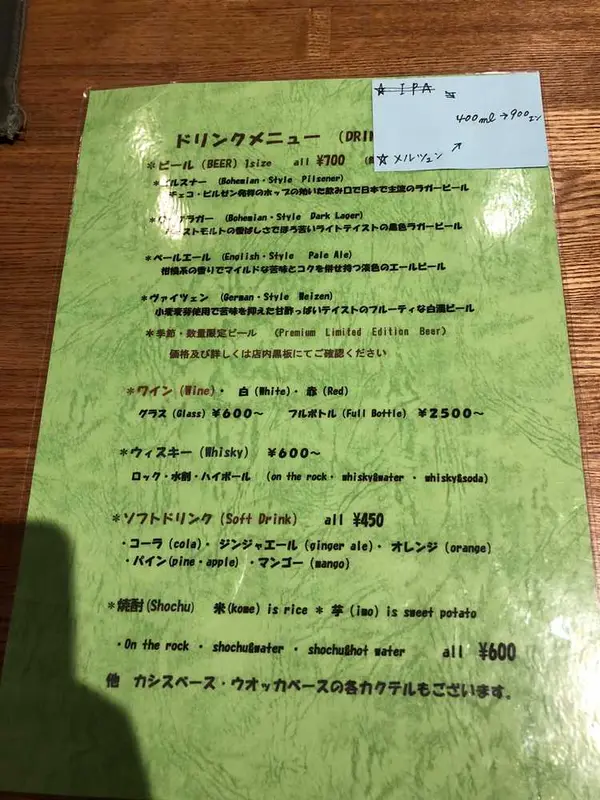 ☆ IPA
400ml→900エン
☆メルツェン
ドリンクメニュー (DRIN
*ビール (BEER) 1size all ¥700
ルスナー (Bohemian・Style Pilsener)
チェコ・ピルゼン発祥のホップの効いた飲み口で日本で主流のラガービール
ラガー (Bohemian・Style Dark Lager)
ーストモルトの香ばしさでほろ苦いライトテイストの黒色ラガービール
・ペールエール (English・Style Pale Ale)
柑橘系の香りでマイルドな苦味とコクを併せ持つ淡色のエールビール
・ヴァイツェン (German・Style Weizen)
小麦麦芽使用で苦味を抑えた甘酸っぱいテイストのフルーティな白濁ビール
*季節・数量限定ビール (Premium Limited Edition Beer)
価格及び詳しくは店内黒板にてご確認ください
*ワイン (Wine)・ 白 (White)・ 赤 (Red)
グラス (Glass) ¥600～ フルボトル (Full Bottle) ¥2500～
*ウィスキー (Whisky) ¥600～
ロック・水割・ハイボール (on the rock・ whisky&water ・ whisky&soda)
*ソフトドリンク (Soft Drink) all ¥450
・コーラ (cola)・ ジンジャエール (ginger ale)・ オレンジ (orange)
・パイン(pine・apple) ・マンゴー (mango)
*焼酎(Shochu) 米(kome) is rice * 芋 (imo) is sweet potato
・On the rock ・ shochu&water ・ shochu&hot water all ¥600
他 カシスベース・ウオッカベースの各カクテルもございます。